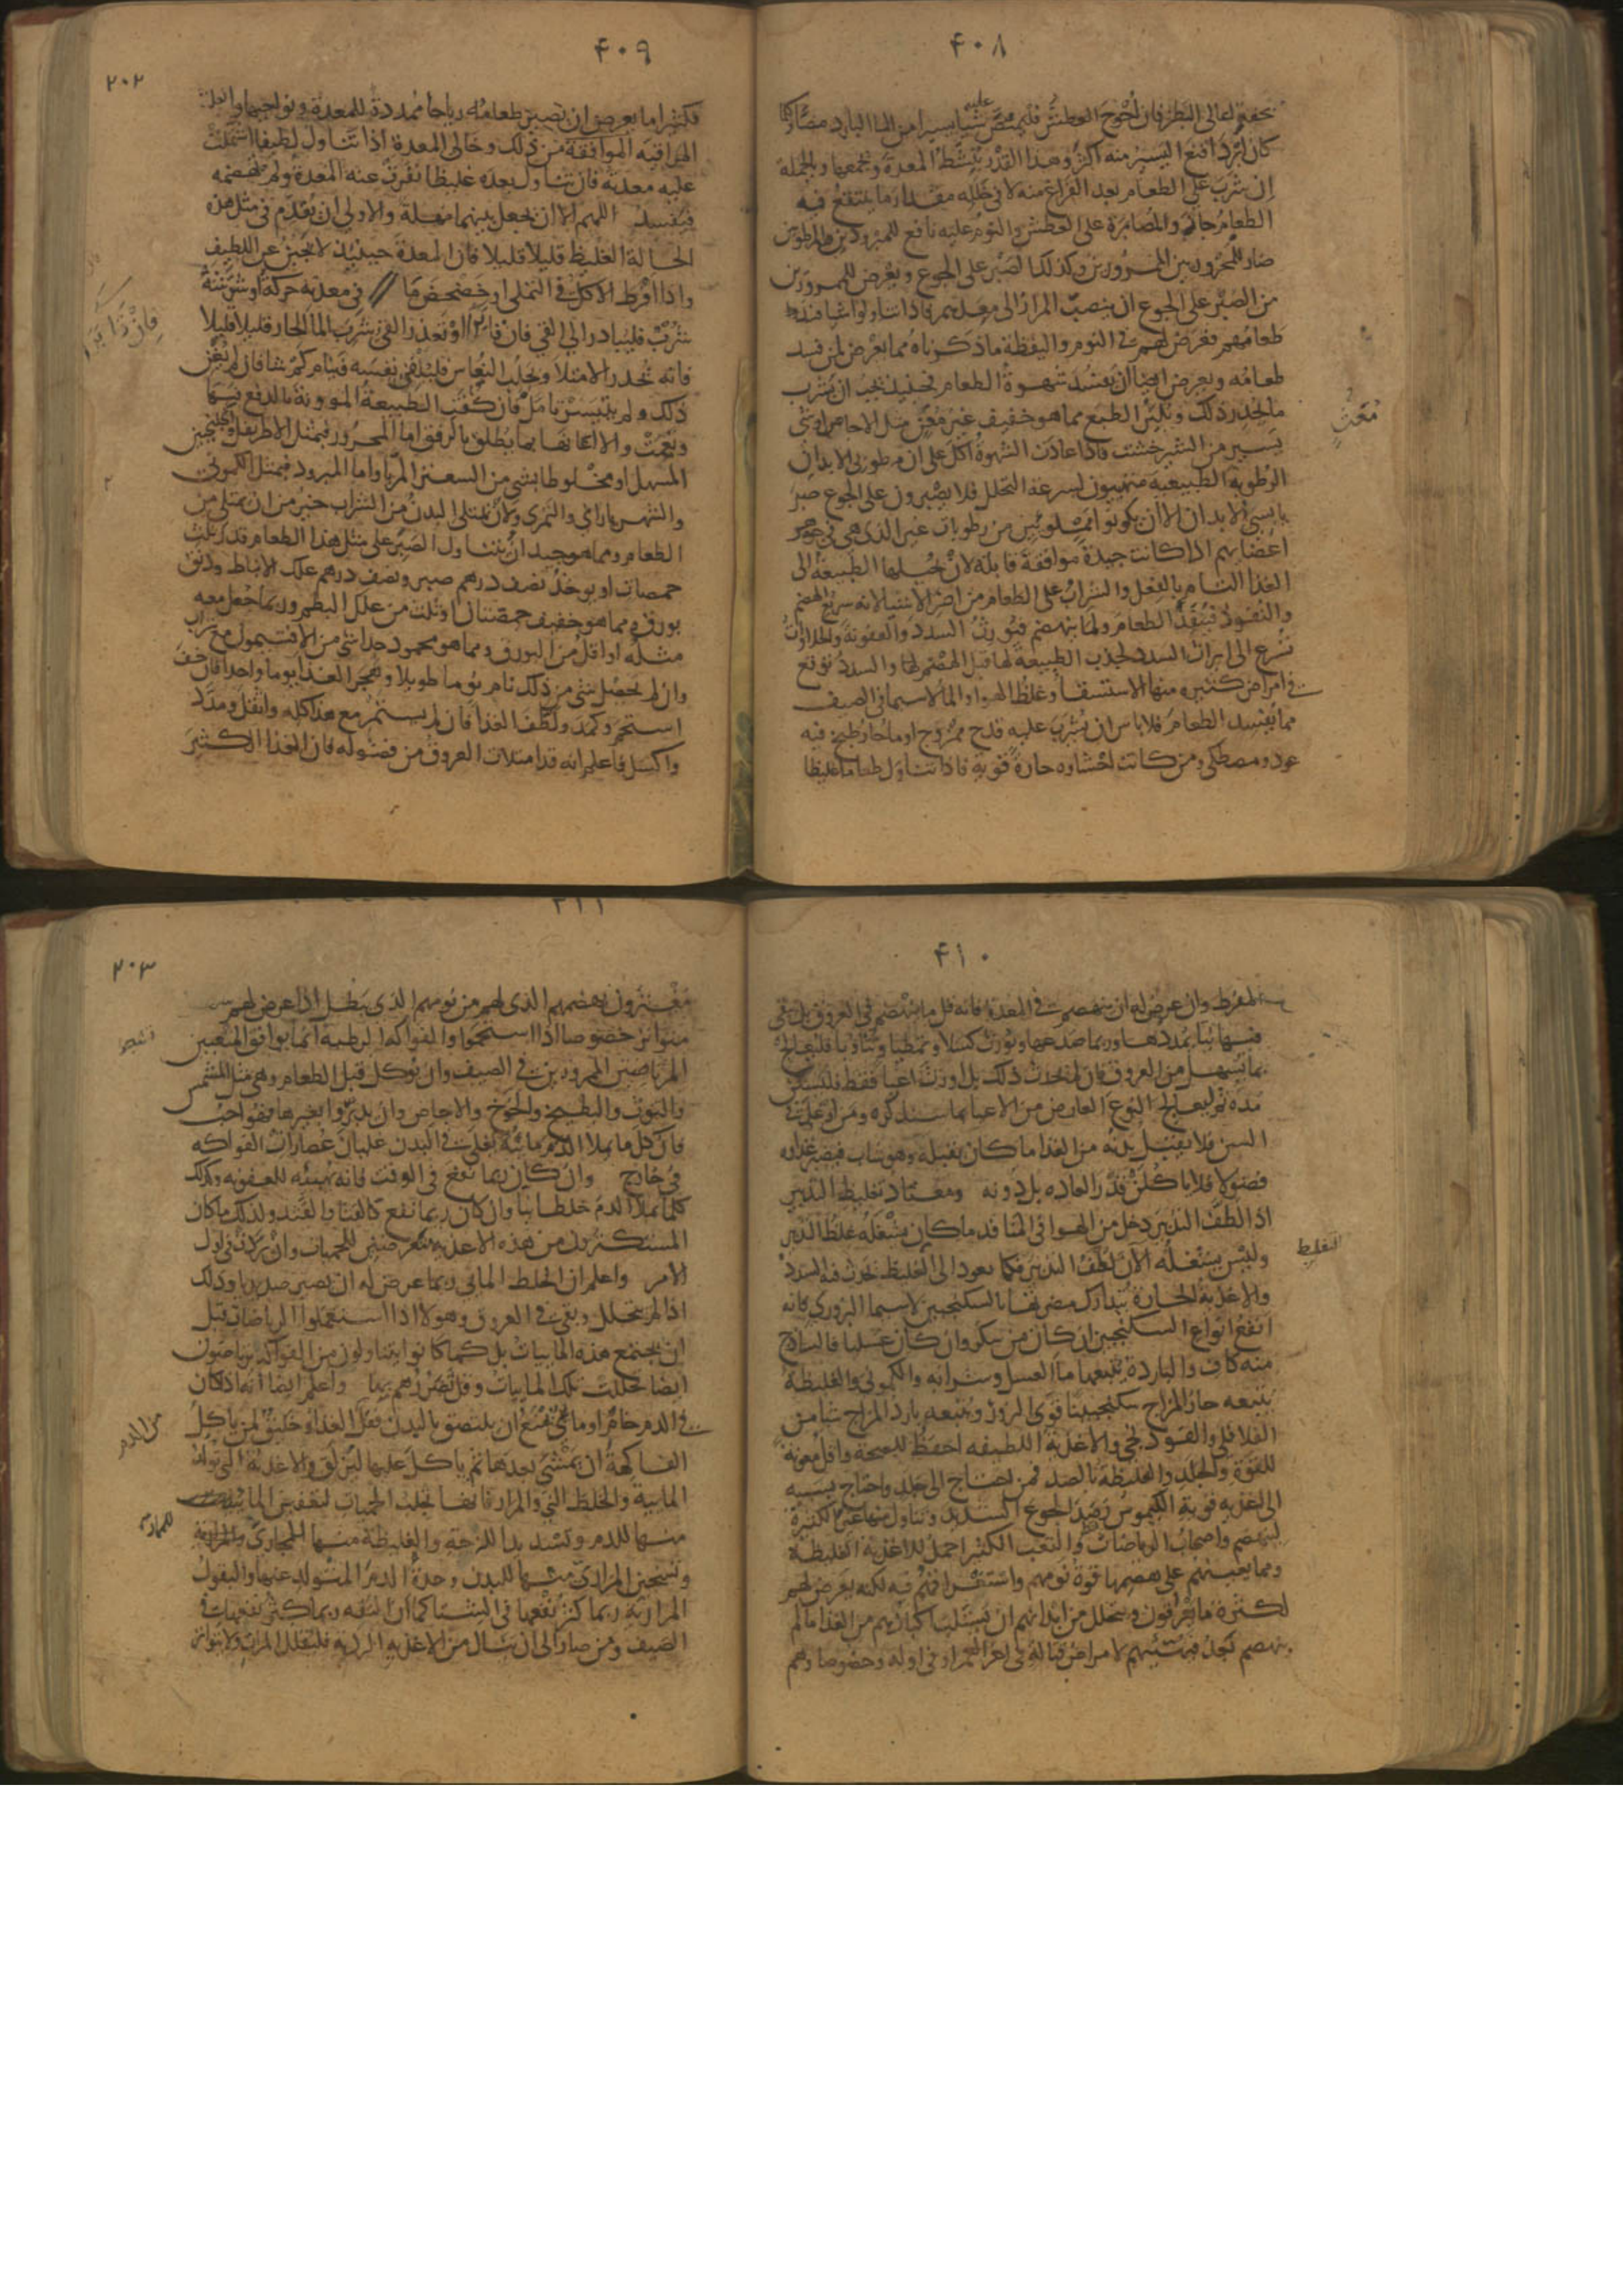 ٤٠٨
بخفتها على البطن فان احوج العطش فليمتص عليه شيئا يسيرا من الماء البارد مصا وكلما
كان ابرد اقنع اليسير منه اكثر وهذا القدر ينشط المعدة ويجمعها وبالجملة
ان شرب على الطعام بعد الفراغ منه لا في خلله مقدار ما ينتقع فيه
الطعام جاز والمصابرة على العطش والنوم عليه نافع للمبرودين والمرطوبين
ضار للمحرورين الممرورين وكذلك الصبر على الجوع ويعرض للممرورين
من الصبر على الجوع ان ينصب المرار الى معدهم فاذا تناولوا شيا فسد
طعامهم فعرض لهم في النوم واليقظة ما ذكرناه مما يعرض لمن فسد
طعامه ويعرض ايضا ان يفسد شهوة الطعام فحينئذ يجب ان يشرب
ما يحدر ذلك ويلين الطبع مما هو خفيف غير مغث مثل الاجاص او شي
يسير من الشيرخشت فاذا عادت الشهوة اكل على ان مرطوبي الابدان
الرطوبة الطبيعية متهيئون لسرعة التحلل فلا يصبرون على الجوع صبر
يابسي الابدان الا ان يكونوا مملوئين من رطوبات غير الذي هي في جوهر
اعضايهم اذا كانت جيدة موافقة قابلة لان يحيلها الطبيعة الى
الغذا التام بالفعل والشراب على الطعام من اضر الاشيا لانه سريع الهضم
والنفوذ فينفذ الطعام ولما ينهضم فيورث السدد والعفونة والحلاوات
تسرع الى ايراث السدد لجذب الطبيعة لها قبل الهضم لها والسدد توقع
في امراض كثيره منها الاستسقا وغلظ الهوا والما لاسيما في الصيف
مما يفسد الطعام فلا باس ان يشرب عليه قدح ممزوج او ما حار وطبخ فيه
عود ومصطكى ومن كانت احشاوه حارة قوية فاذا تناول طعاما غليظا
مغث
٤٠٩
٢٠٢
فكثيرا ما يعرض ان يصير طعامه رياحا ممددة للمعدة ونواحيها والعلة
المراقية الموافقة من ذلك وخالي المعدة اذا تناول لطيفا اشتملت
عليه معدته فان تناول بعده غليظا نفرت عنه المعدة ولم تهضمه
فيفسد اللهم الا ان يجعل بينهما مهلة والاولى ان يقدم في مثل هذه
الحالة الغليظ قليلا قليلا فان المعدة حينئذ لا تجبن عن اللطيف
واذا افرط الاكل في التملي او خضخض ما في معدته حركة او شوشه
شرب فليبادر الى القي فان فات او تعذر القي شرب الما الحار قليلا قليلا
فانه يحدر الامتلا ويجلب النعاس فليلقي نفسه فينام كم شا فان لم يغن
ذلك ولم يتيسر تامل فان كفت الطبيعة المؤونة بالدفع فبها
ونعمت والا اعانها بما يطلق بالرفق اما المحرور فبمثل الاطريفل والجلنجبين
المسهل او مخلوطا بشي من السعتر المربا واما المبرود فبمثل الكموني
والشهرياراني والتمري ولان يمتلي البدن من الشراب خير من ان يمتلي من
الطعام ومما هو جيد ان يتناول الصبر على مثل هذا الطعام قدر ثلث
حمصات او يوخذ نصف درهم صبر ونصف درهم علك الانباط ودانق
بورق ومما هو خفيف حمصتان او ثلث من علك البطم وربما جعل معه
مثله او اقل من البورق ومما هو محمود جدا شي من الافتيمون مع شراب
وان لم يحصل شي من ذلك نام نوما طويلا وهجر الغذا يوما واحدا فان خف
استحم وكمد ولطف الغذا فان لم يستمر مع هذا كله واثقل ومدد
واكسل فاعلم انه قد امتلات العروق من فضوله فان الغذا الكثير
٤١٠
المفرط وان عرض له ان ينهضم في المعدة فانه قل ما ينهضم في العروق بل يبقى
فيها نيا يمددها وربما صدعها ويورث كسلا وتمطيا وتثاوبا فليعالج
بما يسهل من العروق فان لم يحدث ذلك بل اورث اعيا فقط فليسكن
مدة ثم ليعالج النوع العارض من الاعيا بما سنذكره ومن اوغل في
السن فلا يقبل بدنه من الغذا ما كان يقبله وهو شاب فيصير غذاوه
فضولا فلا ياكلن قدر العادة بل دونه ومعتاد تغليظ التدبير
اذا لطف التدبير دخل من الهوا في المنافذ ما كان يشغله غلظ التدبير
وليس يشغله الان لطف التدبير فكما يعود الى الغليظ يحدث فيه السدد
والاغذية الحارة يتدارك مضرتها بالسكنجبين لاسيما البزوري فانه
انفع انواع السكنجبين ان كان من سكر وان كان عسليا فالساذج
منه كاف والباردة يتبعها ما العسل وشرابه والكموني والغليظة
يتبعه حار المزاج سكنجبينا قوي البزور ويتبعه بارد المزاج شيا من
الفلافلي والفوذنجي والاغذية اللطيفه احفظ للصحة واقل معونة
للقوة والجلد والغليظة بالضد فمن احتاج الى جلد واحتاج بسببه
الى اغذية قوية الكيموس رصد الجوع الشديد وتناول منها غير الكثيرة
لينهضم واصحاب الرياضات والتعب الكثير احمل للاغذية الغليظة
ومما يعينهم على هضمها قوة نومهم واستغراقهم فيه لكنه يعرض لهم
لكثرة ما يعرقون ويتحلل من ابدانهم ان يستلب اكبادهم من الغذا ما لم
ينهضم بعد فيهيئهم لامراض قتالة في اخر العمر او في اوله وخصوصا وهم
التغليظ
٢٠٣
مغترون بهضمهم الذي لهم من نومهم الذي يبطل اذا عرض لهم
متواتر خصوصا اذا استحموا والفواكه الرطبة انما يوافق المتعبين
المرتاضين الممرورين في الصيف وان توكل قبل الطعام وهي مثل المشمش
والتوت والبطيخ والخوخ والاجاص وان يدبروا بغيرها فهو احب
فان كل ما يملا الدم مائية يغلي في البدن غليان عصارات الفواكه
في خارج وان كان ربما نفع في الوقت فانه يهيئه للعفونه وكذلك
كلما يملا الدم خلطا نيا وان كان ربما نفع كالقثا والقثد ولذلك ما كان
المستكثرون من هذه الاغذية معرضين للحميات وان بردت في اول
الامر واعلم ان الخلط الماني ربما عرض له ان يصير صديدا وذلك
اذا لم يتحلل وبقي في العروق وهولا اذا استعملوا الرياضات قبل
ان يجتمع هذه المائيات بل كما كانوا يتناولون من الفواكه يرتاضون
ايضا تحللت تلك المائيات وقل تضررهم بها واعلم ايضا انه اذا كان
في الدم خام او مائي منع ان يلتصق بالبدن فقل الغذاء وخليق لمن ياكل
الفاكهة ان يمشي بعدها ثم ياكل عليها ليزلق والاغذية التي تولد
المايية والخلط الني والمرار فانها تجلب الحميات لتعفين المايية
منها للدم وتسديد اللزجة والغليظة منها المجاري
وتسخين المراري منها للبدن وحدة الدم المتولد عنها والبقول
المرارية ربما كثر نفعها في الشتا كما ان التفه ربما كثر نفعها في
الصيف ومن صار الى ان ينال من الاغذية الردية فليقلل المرات ولا يتواتر
من الدم